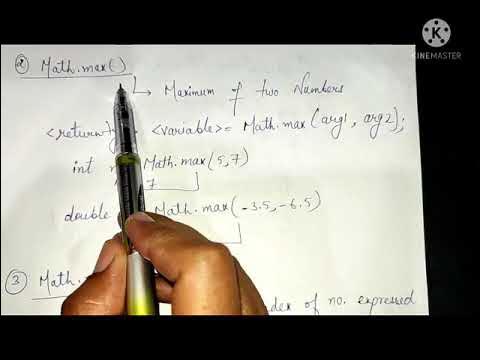 KINEMASTER
② Math.max()
→ Maximum of two Numbers
<return <variable> = Math.max(arg1, arg2);
int Math.max(5,7)
7
double Math.max(-3.5,-6.5)
③ Math.
of no. expressed